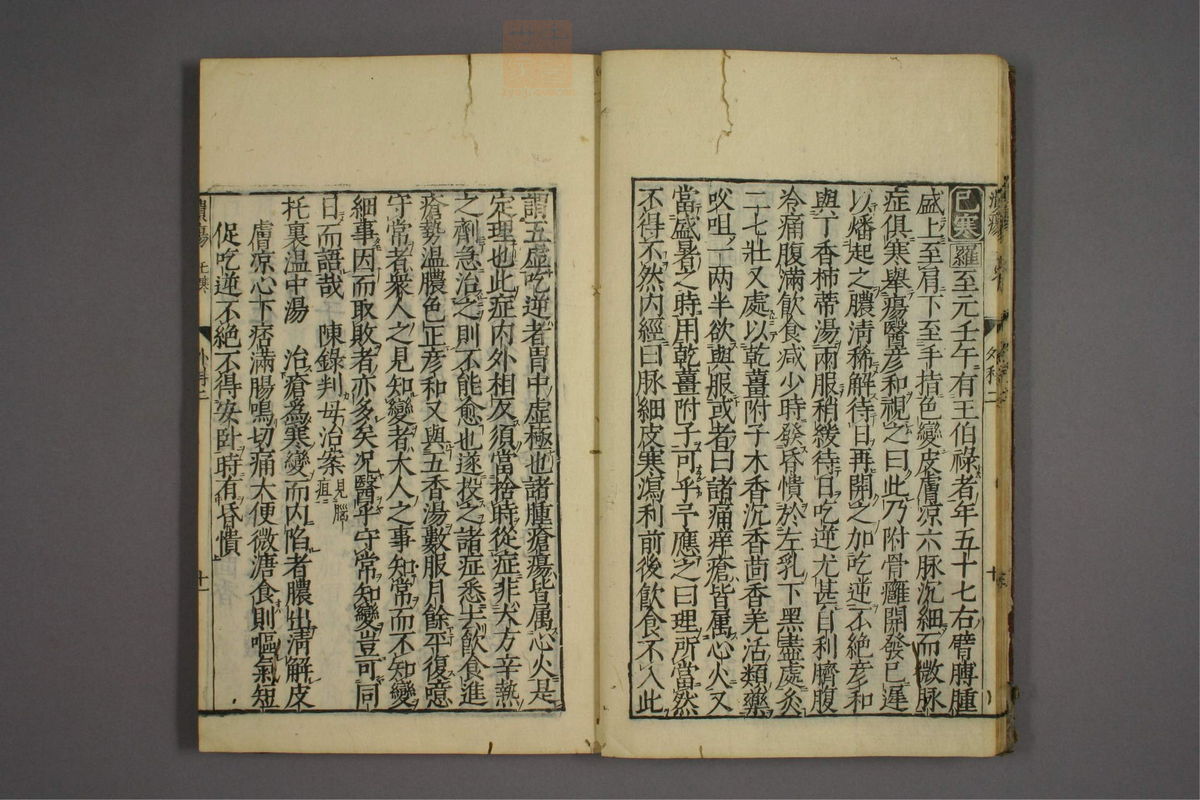 已寒羅至元壬午有王伯祿者年五十七右臂膊腫
盛上至肩下至手指色變皮膚凉六脉沉細而微脉
症俱寒舉瘍醫彥和視之曰此乃附骨癰開發已遲
以燔起之膿清稀解待日再開之加吃逆不絶彥和
與丁香柿蒂湯兩服稍緩待日吃逆尤甚自利臍腹
冷痛腹滿飲食减少時發昏憒於左乳下黑盡處灸
二七壯又處以乾薑附子木香沉香茴香羌活類藥
㕮咀一兩半欲與服或者曰諸痛痒瘡皆属心火又
當盛暑之時用乾薑附子可乎予應之曰理所當然
不得不然内經曰脉細皮寒瀉利前後飲食不入此
謂五虛吃逆者胃中虛極也諸腫瘡瘍皆属心火是
定理也此症内外相反須當捨時從症非大方辛熱
之劑急治之則不能愈也遂投之諸症悉去飲食進
瘡勢温膿色正彥和又與五香湯數服月餘平復噫
守常者衆人之見知變者大人之事知常而不知變
細事因而取敗者亦多矣况醫乎守常知變豈可同
日而語哉　陳錄判母治案見腦疽
托裏温中湯　治瘡爲寒變而内陷者膿出清解皮
膚凉心下痞滿腸鳴切痛大便微溏食則嘔氣短
促吃逆不絶不得安卧時有昏憒
外科二
十一